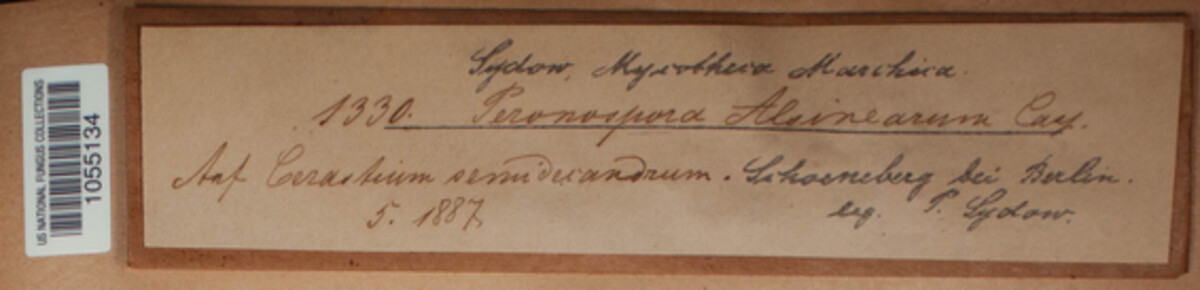 US NATIONAL FUNGUS COLLECTIONS
1055134
Sydow, Mycotheca Marchica.
1330. Peronospora Alsinearum Casp.
Auf Cerastium semidecandrum. Schoeneberg bei Berlin.
5. 1887. leg. P. Sydow.